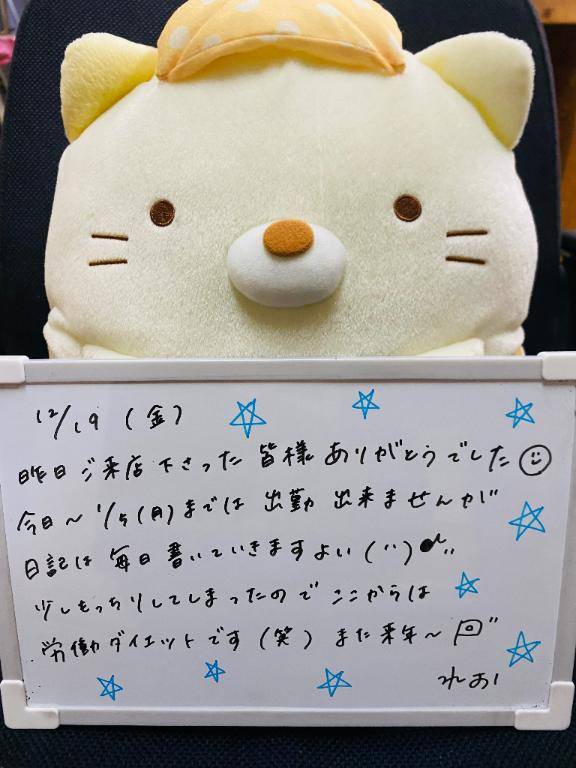 12/19 (金)
昨日ご来店下さった皆様ありがとうでした
今日～1/5(月)までは出勤出来ませんが
日記は毎日書いていきますよい(¨)
少しもっちりしてしまったのでここからは
労働ダイエットです(笑)また来年～
れおい